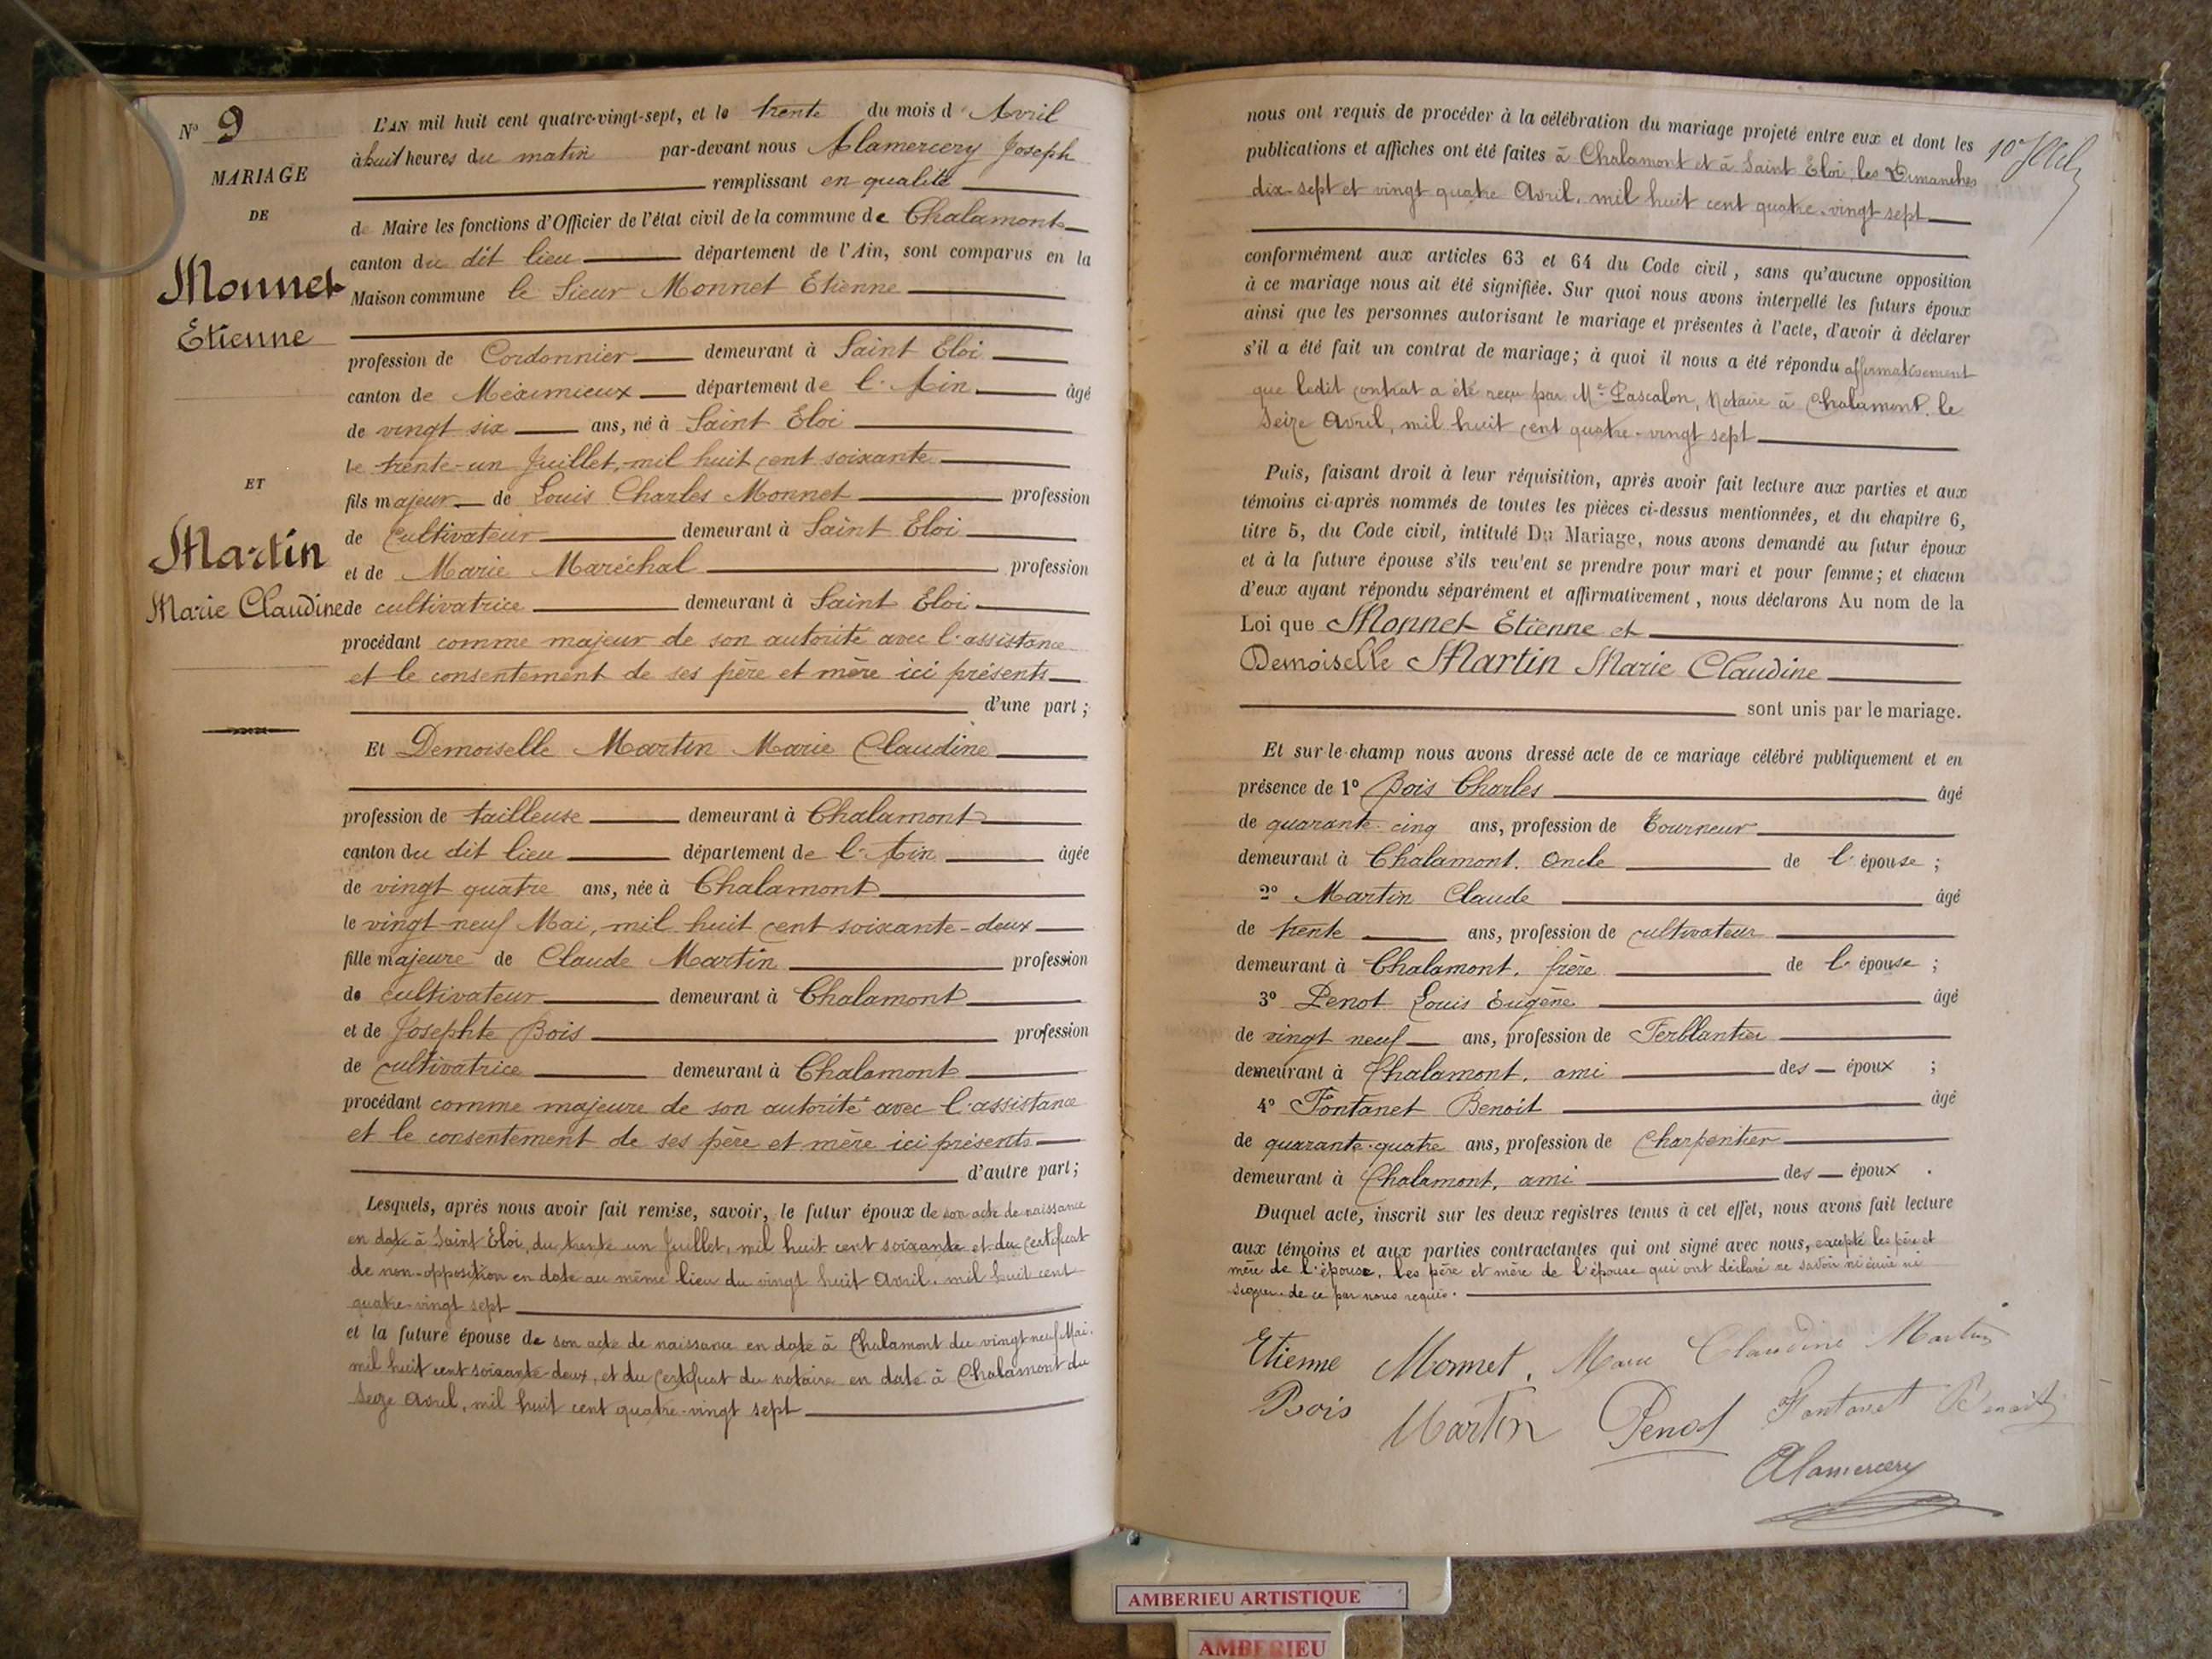 N° 9
MARIAGE
DE
Monnet
Etienne
ET
Martin
Marie Claudine
L'AN mil huit cent quatre-vingt-sept, et le trente du mois d'Avril
à huit heures du matin par-devant nous Alamercery Joseph
remplissant en qualité
de Maire les fonctions d'Officier de l'état civil de la commune de Chalamont
canton du dit lieu département de l'Ain, sont comparus en la
Maison commune le Sieur Monnet Etienne
profession de Cordonnier demeurant à Saint Eloi
canton de Meximieux département de l'Ain âgé
de vingt six ans, né à Saint Eloi
le trente-un Juillet, mil huit cent soixante
fils majeur de Louis Charles Monnet profession
de cultivateur demeurant à Saint Eloi
et de Marie Maréchal profession
de cultivatrice demeurant à Saint Eloi
procédant comme majeur de son autorité avec l'assistance
et le consentement de ses père et mère ici présents
d'une part ;
Et Demoiselle Martin Marie Claudine
profession de tailleuse demeurant à Chalamont
canton du dit lieu département de l'Ain âgée
de vingt quatre ans, née à Chalamont
le vingt-neuf Mai, mil huit cent soixante-deux
fille majeure de Claude Martin profession
de cultivateur demeurant à Chalamont
et de Josephte Bois profession
de cultivatrice demeurant à Chalamont
procédant comme majeure de son autorité avec l'assistance
et le consentement de ses père et mère ici présents
d'autre part ;
Lesquels, après nous avoir fait remise, savoir, le futur époux de son acte de naissance
en date à Saint Eloi, du trente un Juillet, mil huit cent soixante et du certificat
de non-opposition en date au même lieu du vingt huit Avril, mil huit cent
quatre-vingt sept
et la future épouse de son acte de naissance en date à Chalamont du vingt neuf Mai,
mil huit cent soixante-deux, et du certificat du notaire en date à Chalamont du
seize Avril, mil huit cent quatre-vingt sept
nous ont requis de procéder à la célébration du mariage projeté entre eux et dont les
publications et affiches ont été faites à Chalamont et à Saint Eloi, les Dimanches
dix-sept et vingt quatre Avril, mil huit cent quatre-vingt sept
conformément aux articles 63 et 64 du Code civil, sans qu'aucune opposition
à ce mariage nous ait été signifiée. Sur quoi nous avons interpellé les futurs époux
ainsi que les personnes autorisant le mariage et présentes à l'acte, d'avoir à déclarer
s'il a été fait un contrat de mariage ; à quoi il nous a été répondu affirmativement
que ledit contrat a été reçu par Me Pascalon, Notaire à Chalamont, le
Seize Avril, mil huit cent quatre-vingt sept
Puis, faisant droit à leur réquisition, après avoir fait lecture aux parties et aux
témoins ci-après nommés de toutes les pièces ci-dessus mentionnées, et du chapitre 6,
titre 5, du Code civil, intitulé Du Mariage, nous avons demandé au futur époux
et à la future épouse s'ils veulent se prendre pour mari et pour femme ; et chacun
d'eux ayant répondu séparément et affirmativement, nous déclarons Au nom de la
Loi que Monnet Etienne et
Demoiselle Martin Marie Claudine
sont unis par le mariage.
Et sur-le-champ nous avons dressé acte de ce mariage célébré publiquement et en
présence de 1° Bois Charles âgé
de quarante-cinq ans, profession de Tourneur
demeurant à Chalamont, oncle de l'épouse ;
2° Martin Claude âgé
de trente ans, profession de cultivateur
demeurant à Chalamont, frère de l'épouse ;
3° Penot Louis Eugène âgé
de vingt neuf ans, profession de Ferblantier
demeurant à Chalamont, ami des époux ;
4° Fontanet Benoit âgé
de quarante-quatre ans, profession de Charpentier
demeurant à Chalamont, ami des époux .
Duquel acte, inscrit sur les deux registres tenus à cet effet, nous avons fait lecture
aux témoins et aux parties contractantes qui ont signé avec nous, excepté les père et
mère de l'épouse, les père et mère de l'épouse qui ont déclaré ne savoir ni écrire ni
signer de ce par nous requis.
Etienne Monnet, Marie Claudine Martin
Bois Martin Penot Fontanet Benoit
Alamercery
AMBERIEU ARTISTIQUE
AMBERIEU